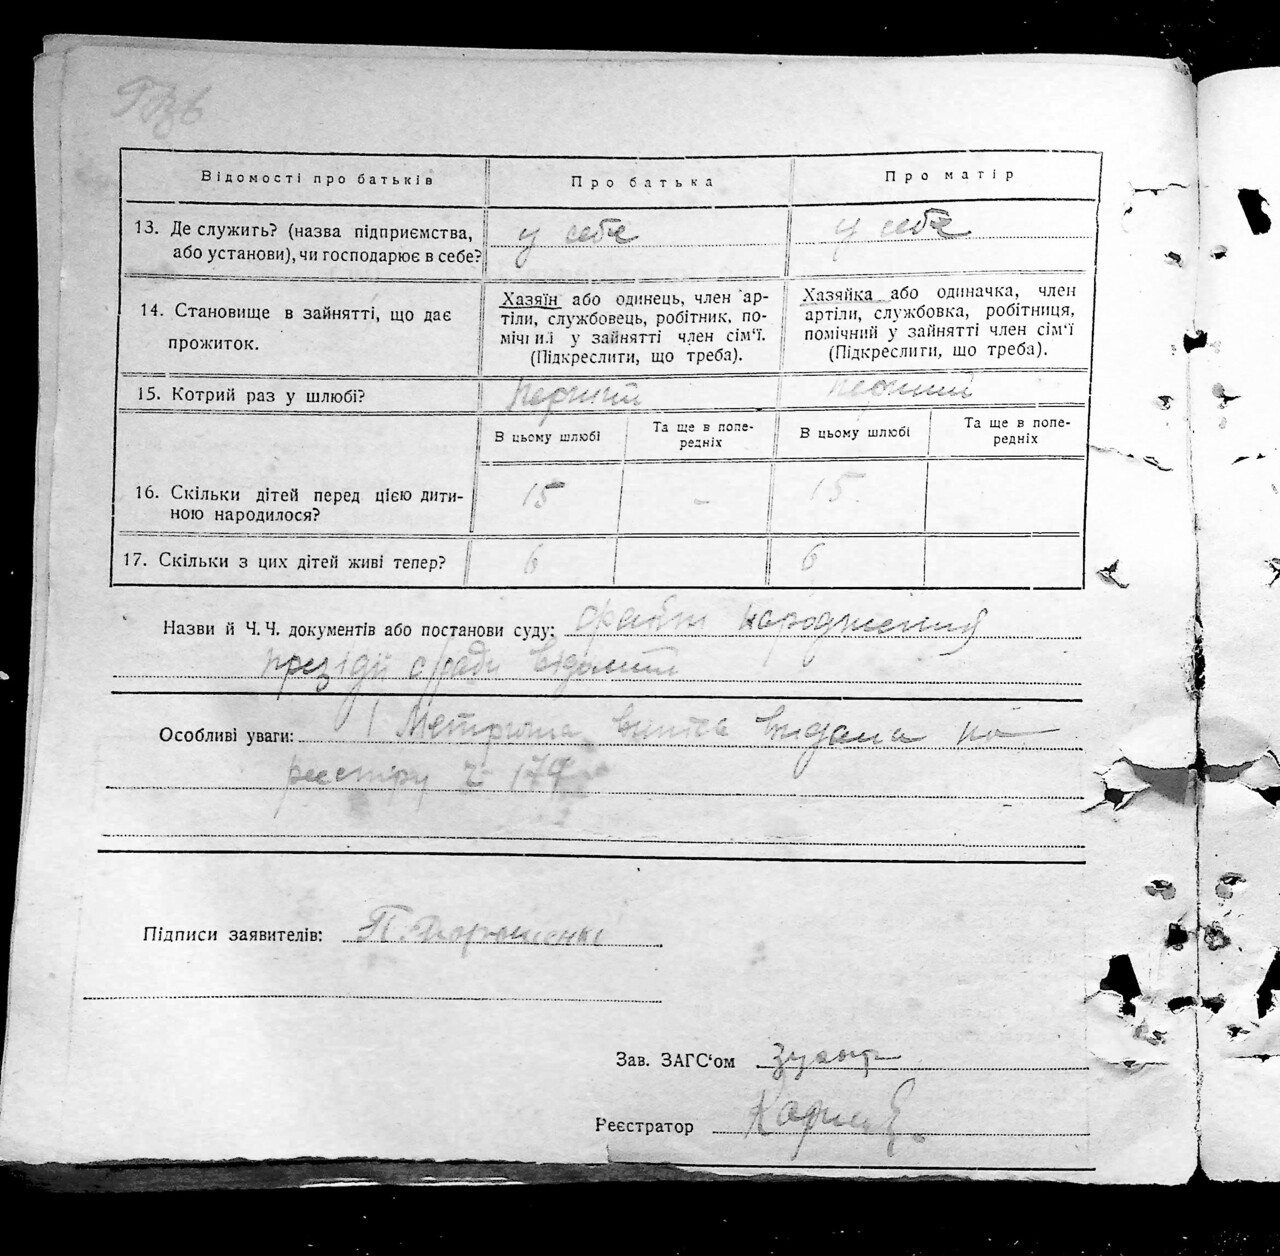 Відомості про батьків
Про батька
Про матір
13. Де служить? (назва підприємства, або установи), чи господарює в себе?
у себе
у себе
14. Становище в зайнятті, що дає прожиток.
Хазяїн або одинець, член ар-
тіли, службовець, робітник, по-
мічний у зайнятті член сім'ї.
(Підкреслити, що треба).
Хазяйка або одиначка, член
артіли, службовка, робітниця,
помічний у зайнятті член сім'ї
(Підкреслити, що треба).
15. Котрий раз у шлюбі?
перший
перший
В цьому шлюбі
Та ще в попе-
редніх
В цьому шлюбі
Та ще в попе-
редніх
16. Скільки дітей перед цією дити-
ною народилося?
15
-
15
17. Скільки з цих дітей живі тепер?
6
6
Назви й Ч. Ч. документів або постанови суду: факт народження
президії с/ради відомий
Особливі уваги: 1 Метрична виписка видана по
реєстру ч 179
Підписи заявителів: П. Дорошенко
Зав. ЗАГС'ом
Реєстратор